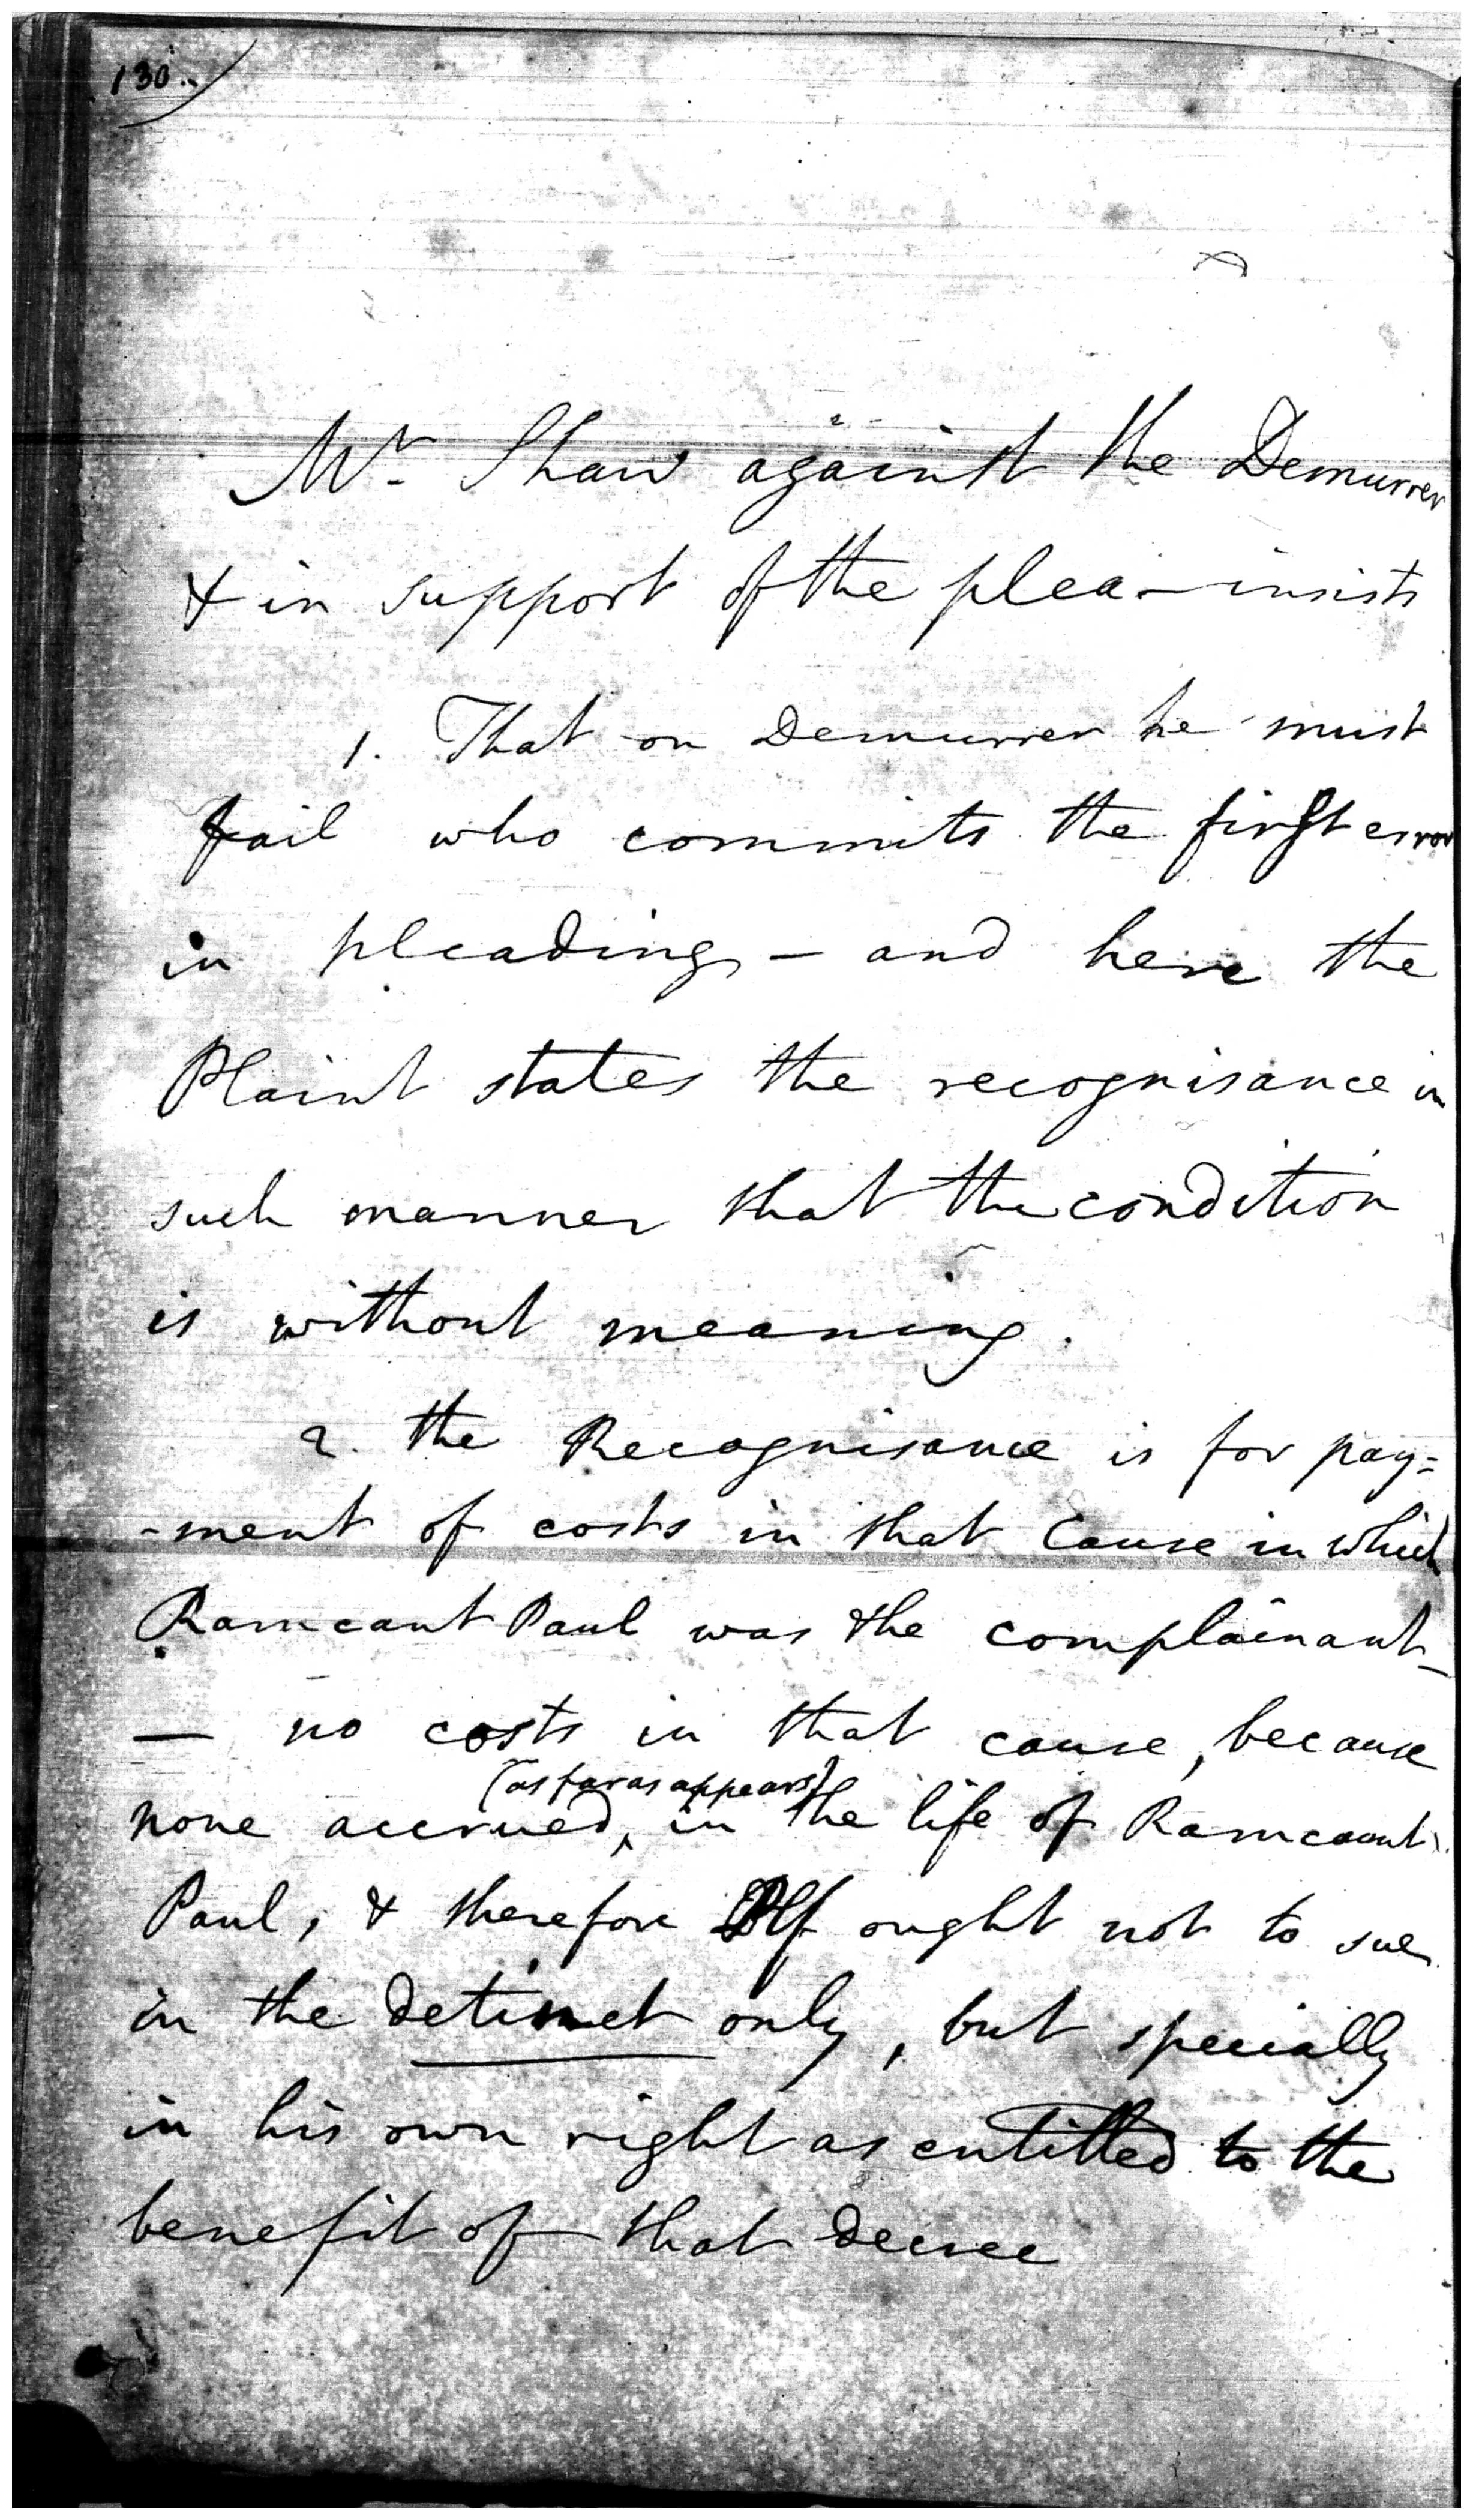 130.
Mr. Shaw against the Demurrer
& in support of the plea - insists
1. That on Demurrer he must
fail who commits the first error
in pleading - and here the
Plaint states the recognisance in
such manner that the condition
is without meaning.
2. the Recognisance is for pay=
-ment of costs in that Cause in which
Ramcaut Paul was the complainant_
— no costs in that cause, because
(as far as appears)
none accrued, in the life of Ramcaunt
Paul, & therefore Plf ought not to sue
in the detinet only, but specially
in his own right as entitled to the
benefit of that decree